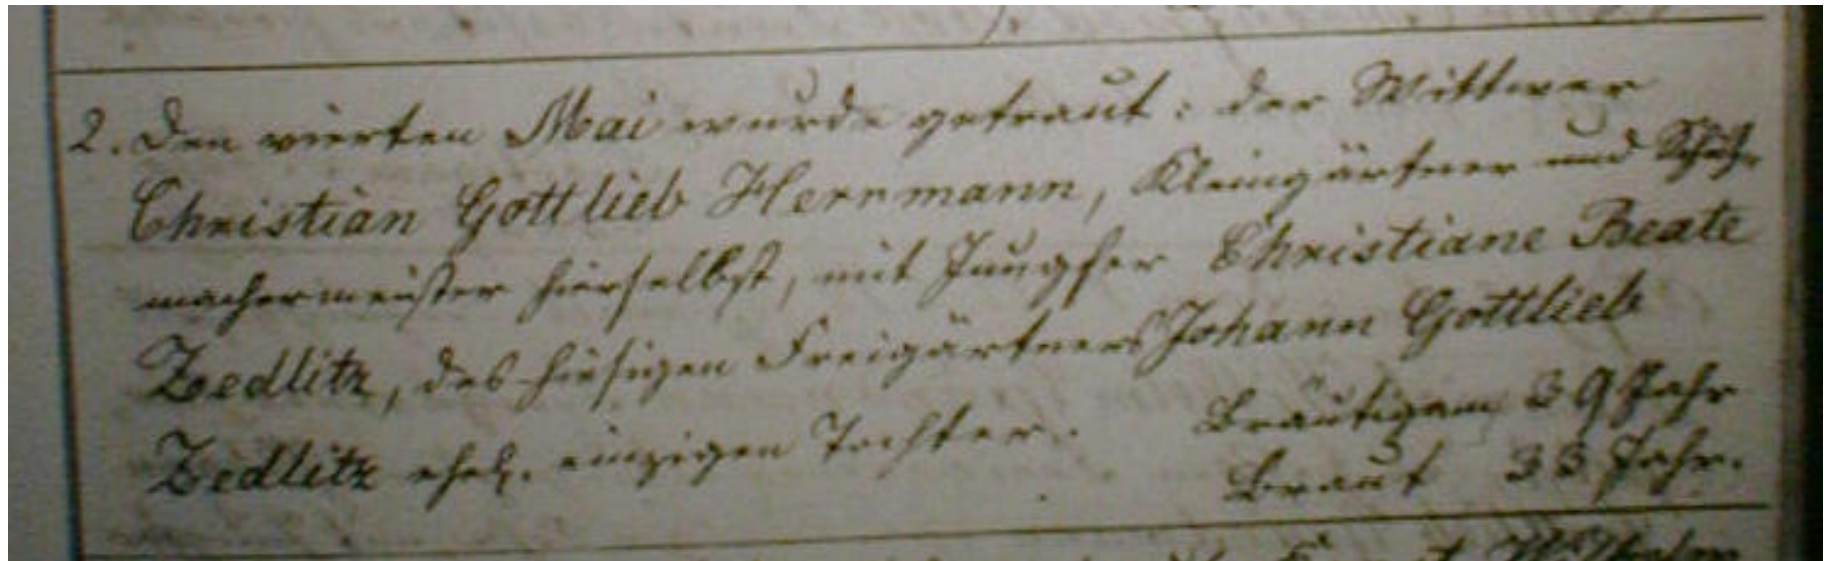 2. Den vierten Mai wurde getraut: der Wittwer
Christian Gottlieb Herrmann, Kleingärtner und Schuh-
machermeister hierselbst, mit Jungfer Christiane Beate
Zedlitz, des hiesigen Freigärtners Johann Gottlieb
Zedlitz ehel. einzigen Tochter. Bräutigam 39 Jahr
Braut 33 Jahr.